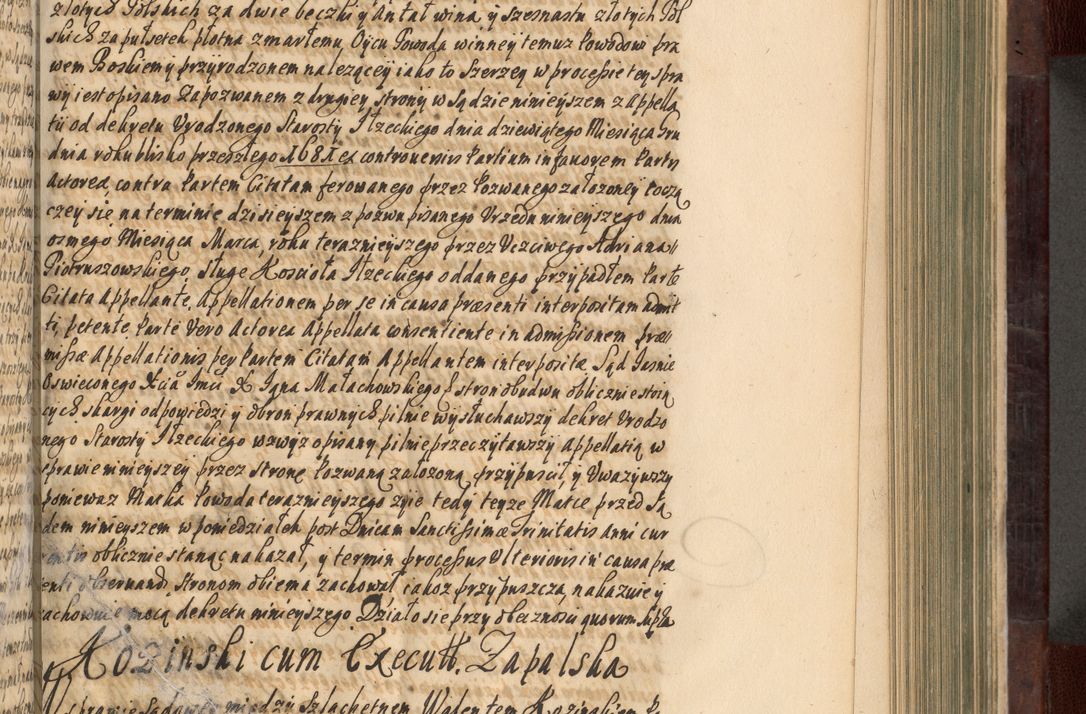 złotych Polskich za dwie beczki y Antał wina, y szesnastu złotych Pol
skich za pułsetek płotna zmarłemu Oycu Powoda winney temuz Powodowi pra
wem Boskiem y przyrodzonem nalezącey iako to Szerzey w processie tey spra
wy iest opisano Zapozwanem z drugiey strony w Sądzie ninieyszem z Appella
tii od dekretu Urodzonego Starosty Iłzeckiego dnia dziewiątego Miesiąca Gru
dnia roku blisko przeszłego 1681 ex controversiis Partium in favorem Partis
Actorea contra Partem Citatam ferowanego przez Pozwanego załozoney toczą
czey się na terminie dzisieyszem z pozwu pisanego Urzędu ninieyszego dnia
osmego Miesiąca Marca, roku teraznieyszego przez Uczciwego Adriana
Piotruszowskiego, sługę Koscioła Iłzeckiego oddanego przypadłem Parte
Citata Appellante, Appellationem per se in causa præsenti interpositam admit
ti, petente Parte Vero Actorea Appellata consentiente in admissionem præ
missæ Appellationis per Partem Citatam Appellantem interpositæ Sąd Jasnie
Oswieconego Xcia Imci X Jana Małachowskiego stron obudwu oblicznie stoią
cych skargi odpowiedzi y obron prawnych pilnie wysłuchawszy dekret Urodzo
nego Starosty Iłzeckiego wzwyz opisany pilnie przeczytawszy Appellatią w
sprawie ninieyszey przez stronę Pozwaną załozoną przypuscił, y Uwazywszy
poniewaz Matka Powoda teraznieyszego zyie tedy teyze Matce przed Są
dem ninieyszem w poniedziałek post Dnicam Sanctissimæ Trinitatis Anni cur
rentis oblicznie stanąc nakazał, y termin processus Ulterioris in causa præ
senti observand. Stronom obiema zachował iakoz przypuszcza, nakazuie y
zachowuie mocą dekretu ninieyszego. Działo sie przy obecznosci quorum supra
Kozinski cum Executt. Zapalska
W sprawie Sądowey między Szlachetnem Walentem Kozinskiem Po